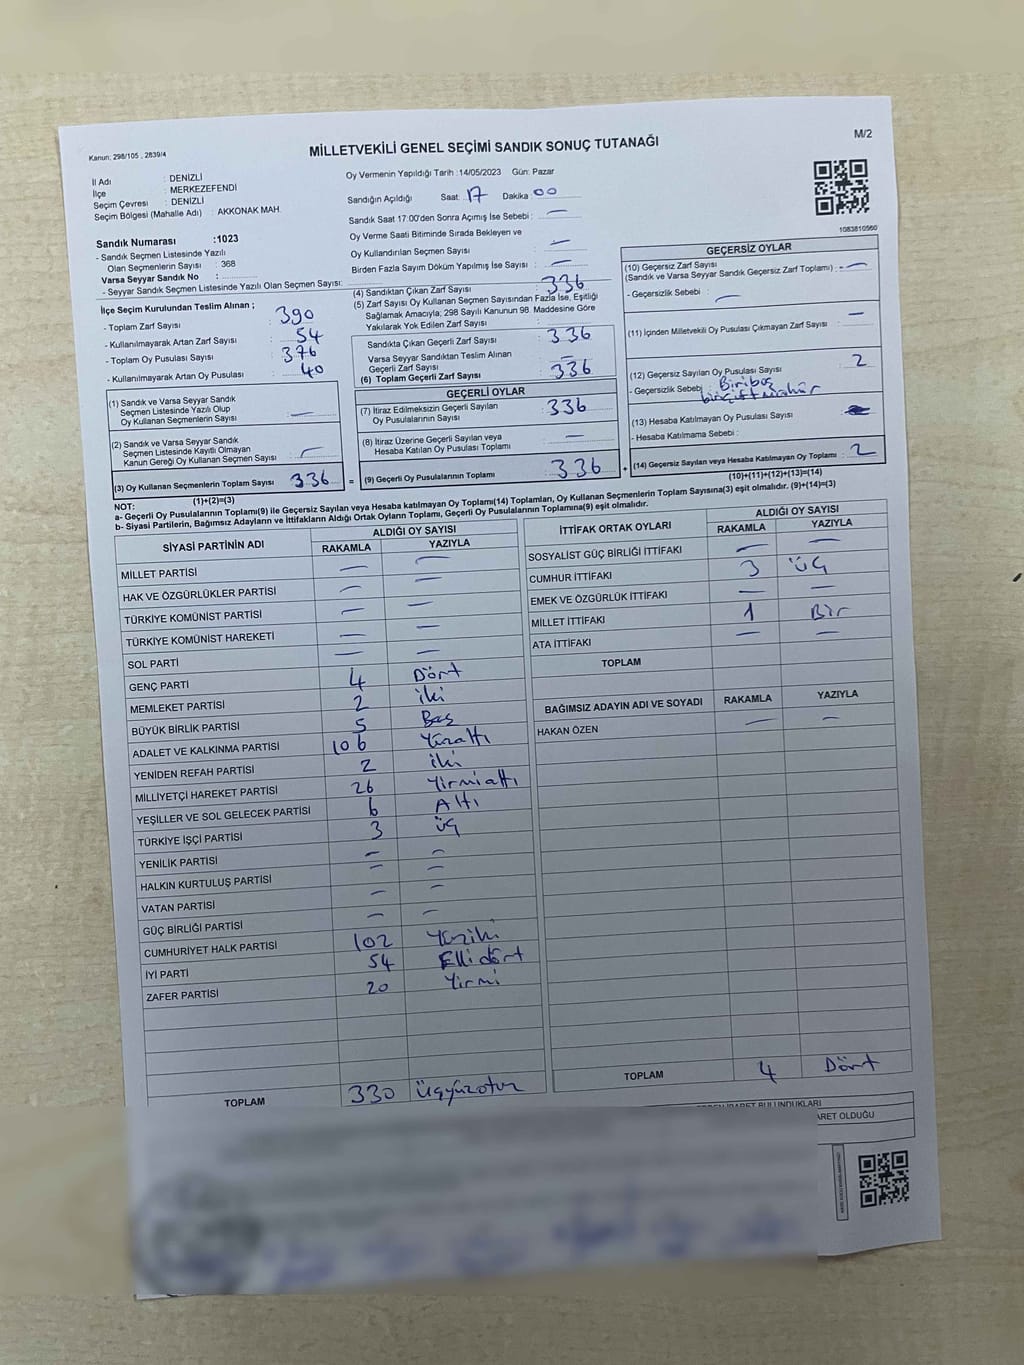 Kanun: 298/105 , 2839/4
MİLLETVEKİLİ GENEL SEÇİMİ SANDIK SONUÇ TUTANAĞI
M/2
İl Adı : DENİZLİ
İlçe : MERKEZEFENDİ
Seçim Çevresi : DENİZLİ
Seçim Bölgesi (Mahalle Adı) : AKKONAK MAH.
Sandık Numarası :1023
- Sandık Seçmen Listesinde Yazılı
Olan Seçmenlerin Sayısı : 368
Varsa Seyyar Sandık No :
- Seyyar Sandık Seçmen Listesinde Yazılı Olan Seçmen Sayısı:
Oy Vermenin Yapıldığı Tarih :14/05/2023 Gün: Pazar
Sandığın Açıldığı Saat: 17 Dakika : 00
Sandık Saat 17:00'den Sonra Açımış İse Sebebi : —
Oy Verme Saati Bitiminde Sırada Bekleyen ve
Oy Kullandırılan Seçmen Sayısı : —
Birden Fazla Sayım Döküm Yapılmış İse Sayısı : —
1083810560
İlçe Seçim Kurulundan Teslim Alınan ;
- Toplam Zarf Sayısı : 390
- Kullanılmayarak Artan Zarf Sayısı : 54
- Toplam Oy Pusulası Sayısı : 376
- Kullanılmayarak Artan Oy Pusulası : 40
(1) Sandık ve Varsa Seyyar Sandık
Seçmen Listesinde Yazılı Olup
Oy Kullanan Seçmenlerin Sayısı : —
(2) Sandık ve Varsa Seyyar Sandık
Seçmen Listesinde Kayıtlı Olmayan
Kanun Gereği Oy Kullanan Seçmen Sayısı : —
(3) Oy Kullanan Seçmenlerin Toplam Sayısı : 336
(1)+(2)=(3)
(4) Sandıktan Çıkan Zarf Sayısı : 336
(5) Zarf Sayısı Oy Kullanan Seçmen Sayısından Fazla İse, Eşitliği
Sağlamak Amacıyla; 298 Sayılı Kanunun 98. Maddesine Göre
Yakılarak Yok Edilen Zarf Sayısı :
Sandıkta Çıkan Geçerli Zarf Sayısı : 336
Varsa Seyyar Sandıktan Teslim Alınan
Geçerli Zarf Sayısı : —
(6) Toplam Geçerli Zarf Sayısı : 336
GEÇERLİ OYLAR
(7) İtiraz Edilmeksizin Geçerli Sayılan
Oy Pusulalarının Sayısı : 336
(8) İtiraz Üzerine Geçerli Sayılan veya
Hesaba Katılan Oy Pusulası Toplamı : —
= (9) Geçerli Oy Pusulalarının Toplamı : 336 +
GEÇERSİZ OYLAR
(10) Geçersiz Zarf Sayısı
(Sandık ve Varsa Seyyar Sandık Geçersiz Zarf Toplamı) : —
- Geçersizlik Sebebi : —
(11) İçinden Milletvekili Oy Pusulası Çıkmayan Zarf Sayısı : —
(12) Geçersiz Sayılan Oy Pusulası Sayısı : 2
- Geçersizlik Sebebi : Biri boş
bir çift mühür
(13) Hesaba Katılmayan Oy Pusulası Sayısı :
- Hesaba Katılmama Sebebi :
(14) Geçersiz Sayılan veya Hesaba Katılmayan Oy Toplamı : 2
(10)+(11)+(12)+(13)=(14)
NOT:
a- Geçerli Oy Pusulalarının Toplamı(9) ile Geçersiz Sayılan veya Hesaba katılmayan Oy Toplamı(14) Toplamları, Oy Kullanan Seçmenlerin Toplam Sayısına(3) eşit olmalıdır. (9)+(14)=(3)
b- Siyasi Partilerin, Bağımsız Adayların ve İttifakların Aldığı Ortak Oyların Toplamı, Geçerli Oy Pusulalarının Toplamına(9) eşit olmalıdır.
SİYASİ PARTİNİN ADI ALDIĞI OY SAYISI
RAKAMLA YAZIYLA
MİLLET PARTİSİ — —
HAK VE ÖZGÜRLÜKLER PARTİSİ — —
TÜRKİYE KOMÜNİST PARTİSİ — —
TÜRKİYE KOMÜNİST HAREKETİ — —
SOL PARTİ — —
GENÇ PARTİ 4 Dört
MEMLEKET PARTİSİ 2 iki
BÜYÜK BİRLİK PARTİSİ 5 Beş
ADALET VE KALKINMA PARTİSİ 106 Yüzaltı
YENİDEN REFAH PARTİSİ 2 iki
MİLLİYETÇİ HAREKET PARTİSİ 26 Yirmialtı
YEŞİLLER VE SOL GELECEK PARTİSİ 6 Altı
TÜRKİYE İŞÇİ PARTİSİ 3 üç
YENİLİK PARTİSİ — —
HALKIN KURTULUŞ PARTİSİ — —
VATAN PARTİSİ — —
GÜÇ BİRLİĞİ PARTİSİ — —
CUMHURİYET HALK PARTİSİ 102 Yüziki
İYİ PARTİ 54 Ellidört
ZAFER PARTİSİ 20 Yirmi
TOPLAM 330 Üçyüzotuz
İTTİFAK ORTAK OYLARI ALDIĞI OY SAYISI
RAKAMLA YAZIYLA
SOSYALİST GÜÇ BİRLİĞİ İTTİFAKI — —
CUMHUR İTTİFAKI 3 üç
EMEK VE ÖZGÜRLÜK İTTİFAKI — —
MİLLET İTTİFAKI 1 Bir
ATA İTTİFAKI — —
TOPLAM
BAĞIMSIZ ADAYIN ADI VE SOYADI RAKAMLA YAZIYLA
HAKAN ÖZEN — —
TOPLAM 4 Dört
BULUNDUKLARI
OLDUĞU